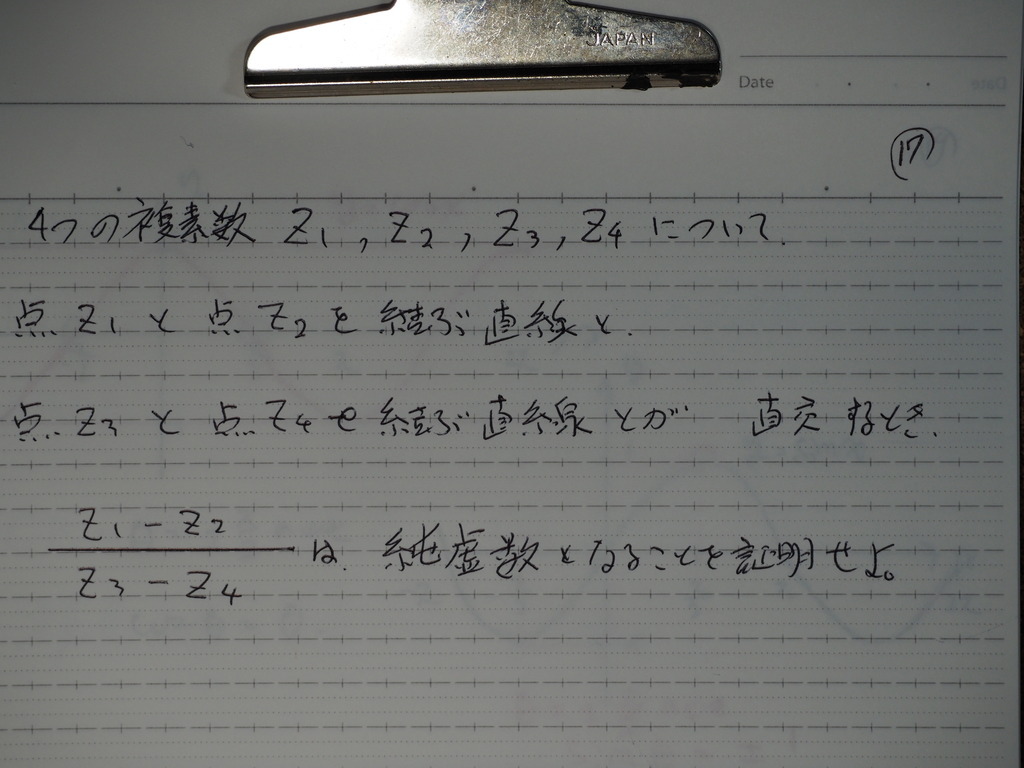 JAPAN
Date
17
4つの複素数 Z1, Z2, Z3, Z4 について、
点 Z1 と 点 Z2 を 結ぶ 直線と、
点 Z3 と 点 Z4 を 結ぶ 直線とが 直交するとき、
Z1 - Z2
Z3 - Z4
は、純虚数となることを証明せよ。